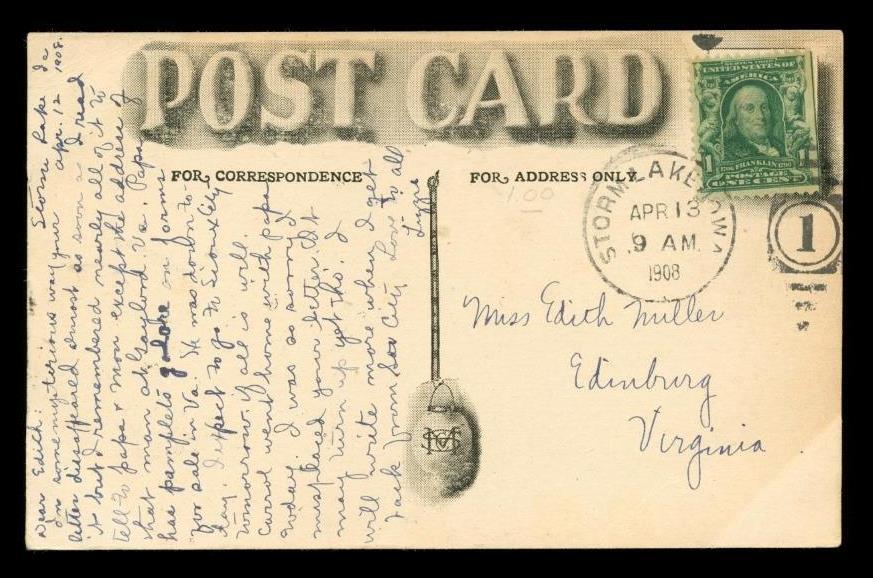 POST CARD
FOR CORRESPONDENCE
FOR ADDRESS ONLY
1.00
UNITED STATES OF
AMERICA
1 FRANKLIN 1
POSTAGE
ONE CENT
STORM LAKE IOWA
APR 13
9 AM
1908
1
Miss Edith Miller
Edinburg
Virginia
Storm Lake Ia
Apr. 12 1908.
Dear Edith:
In some mysterious way your
letter disappeared almost as soon as I read
it but I remembered nearly all of it to
tell to papa & mon except the address of
that man at Gaylord Va. Papa
has pamplets galore on farms
for sale in Va. He was down to-
day. I expect to go to Sioux City
tomorrow if all is well.
Carrol went home with papa
today. I was so sorry I
misplaced your letter. It
may turn up yet tho'. I
will write more when I get
back from Sou City Love to all
Lizzie